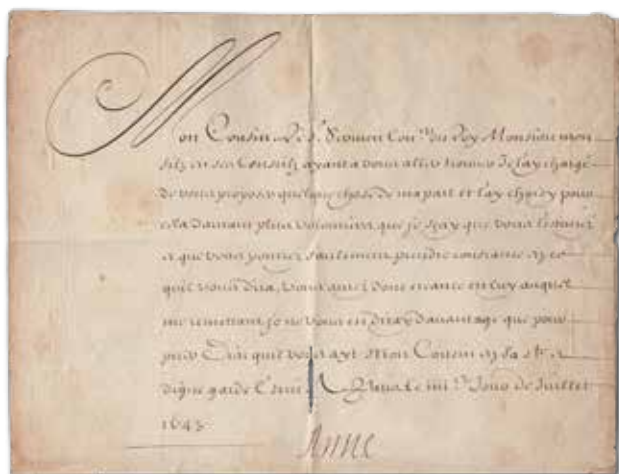 Mon Cousin Le S.r Con.er du Roy Monsieur mon
filz en ses Conseilz ayant a vous aller trouver Je l'ay chargé
de vous proposer quelque chose de ma part et l'ay choisy pour
cela d'autant plus volontiers que je sçay que vous l'estimez
et que vous pouvez seulement prendre en ce
qu'il vous dira, vous aurez donc creance en luy auquel
me remettant je ne vous en diray davantage que pour
prier Dieu qu'il vous ayt Mon Cousin en sa s.te et
digne garde Escrit A Paris le iiii.e Jour de Juillet
1643
Anne